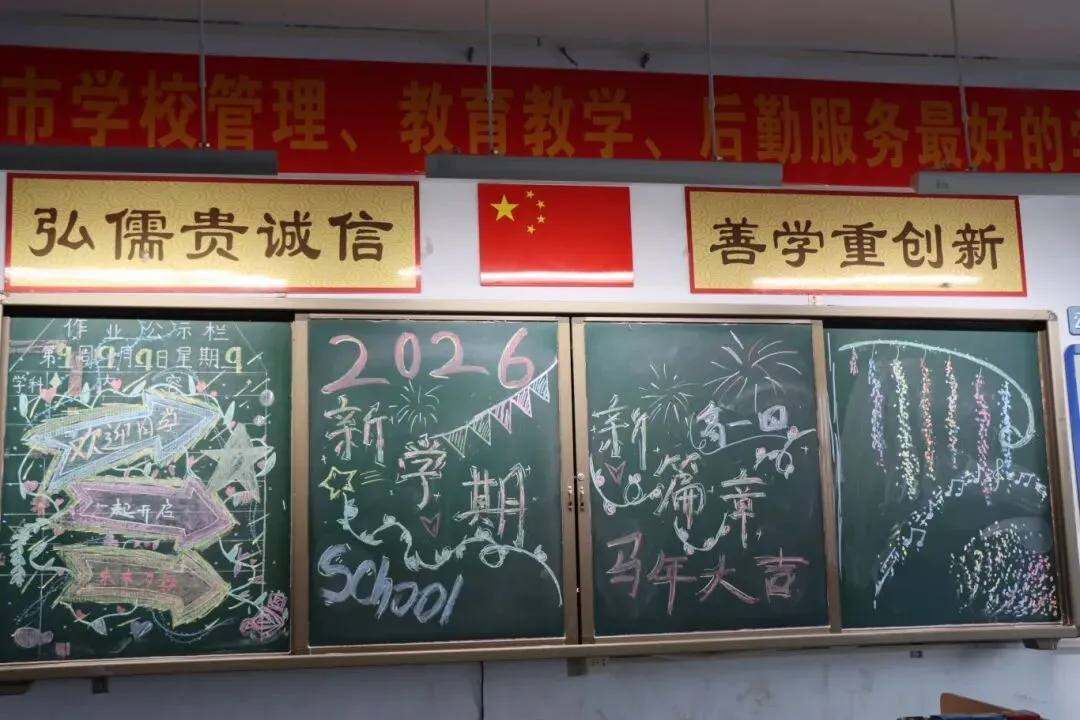 市学校管理、教育教学、后勤服务最好的学
弘儒贵诚信
善学重创新
作业公示栏
第9周9月9日星期9
学科
欢迎同学
一起开启
2026
新学期
SCHOOL
新
篇章
马年大吉